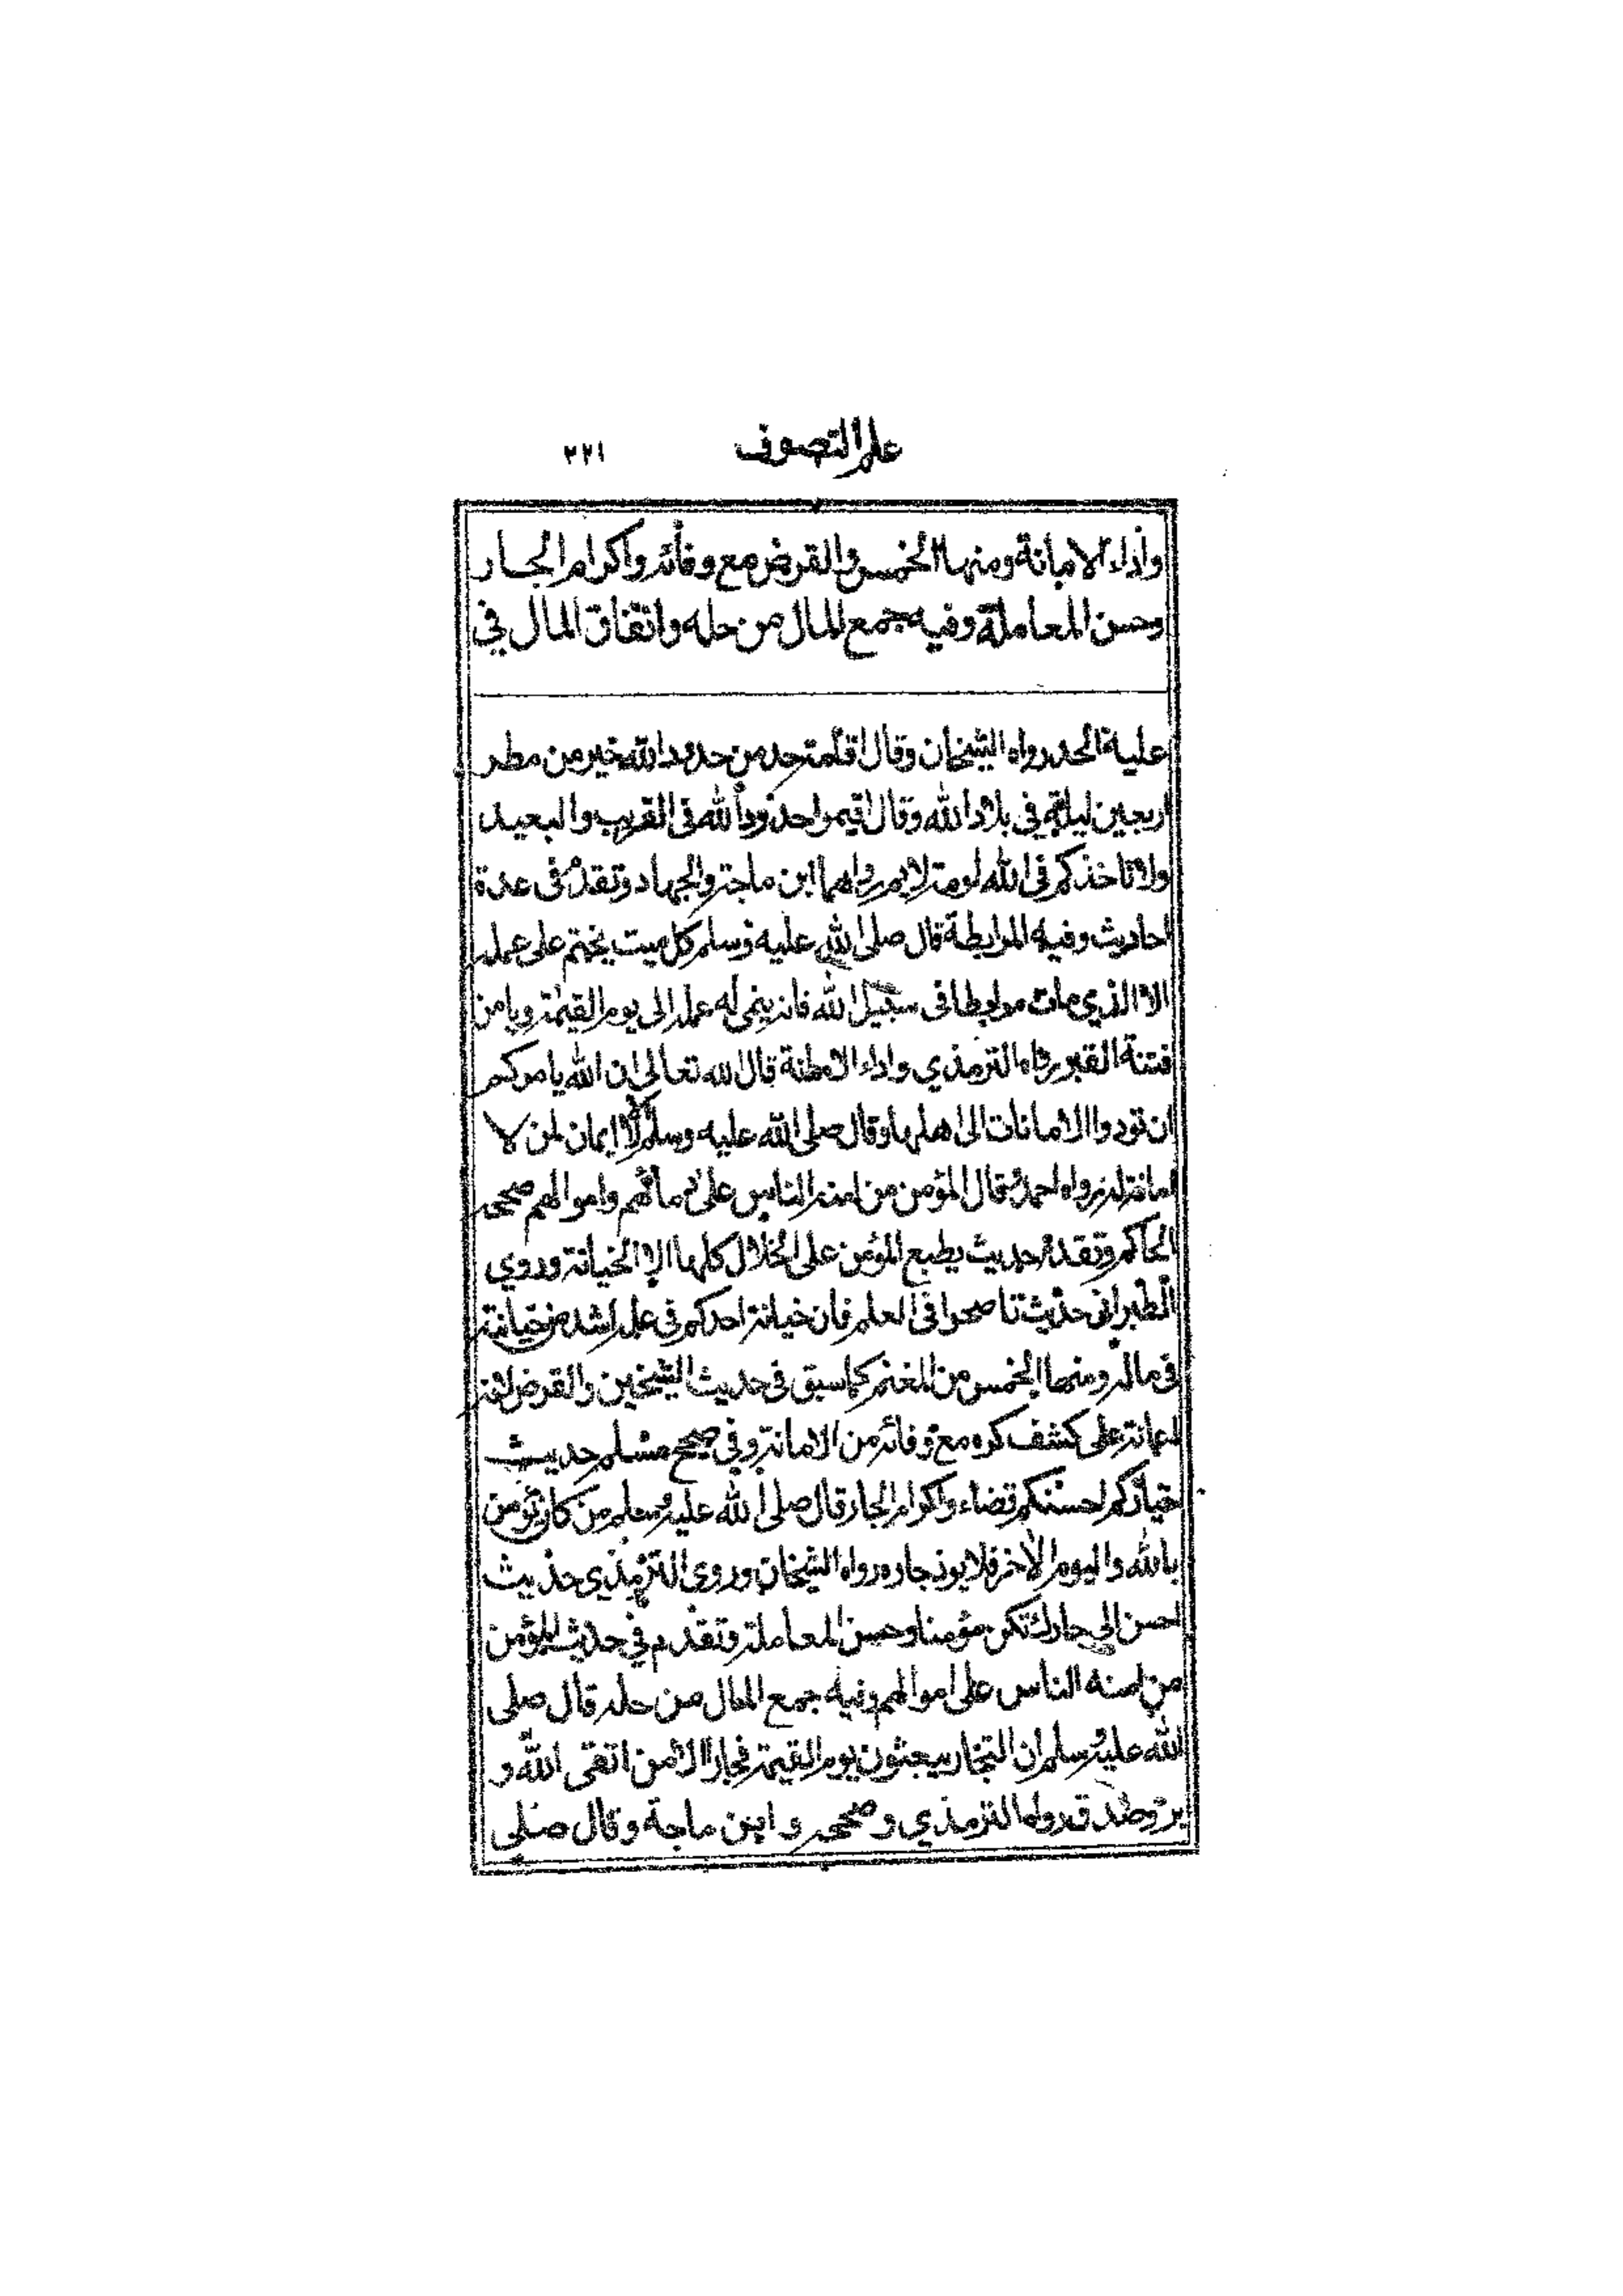 علم التصوف ٢٢١
واداء الامانة ومنها الخمس والقرض مع وفائه واكرام الجار
وحسن المعاملة وفيه جمع المال من حله وانفاق المال في
عليه الحد رواه الشيخان وقال اقامة حد من حدود الله خير من مطر
اربعين ليلة في بلاد الله وقال اقيموا حدود الله فى القريب والبعيد
ولا تاخذكم فى الله لومة لايم رواهما ابن ماجة والجهاد وتقدم فى عدة
احاديث وفيه المرابطة قال صلى الله عليه وسلم كل ميت يختم على عمله
الا الذي مات مرابطا فى سبيل الله فانه ينمى له عمله الى يوم القيمة ويامن
فتنة القبر رواه الترمذي واداء الامانة قال الله تعالى ان الله يامركم
ان تودوا الامانات الى اهلها وقال صلى الله عليه وسلم لا ايمان لمن لا
امانة له رواه احمد وقال المؤمن من امنه الناس على دمائهم واموالهم صححه
الحاكم وتقدم حديث يطبع المؤمن على الخلال كلها الا الخيانة وروي
الطبرانى حديث تناصحوا فى العلم فان خيانة احدكم فى علمه اشد من خيانته
فى ماله ومنها الخمس من المغنم كما سبق فى حديث الشيخين والقرض لانه
اعانة على كشف كربه مع وفائه من الامانة وفي صحيح مسلم حديث
خياركم احسنكم قضاء واكرام الجار قال صلى الله عليه وسلم من كان يؤمن
بالله واليوم الاخر فلا يوذ جاره رواه الشيخان وروى الترمذي حديث
احسن الى جارك تكن مؤمنا وحسن المعاملة وتقدم في حديث المؤمن
من امنه الناس على اموالهم وفيه جمع المال من حله قال صلى
الله عليه وسلم ان التجار يبعثون يوم القيمة فجارا الا من اتقى الله و
بر وصدق رواه الترمذي وصححه وابن ماجة وقال صلى